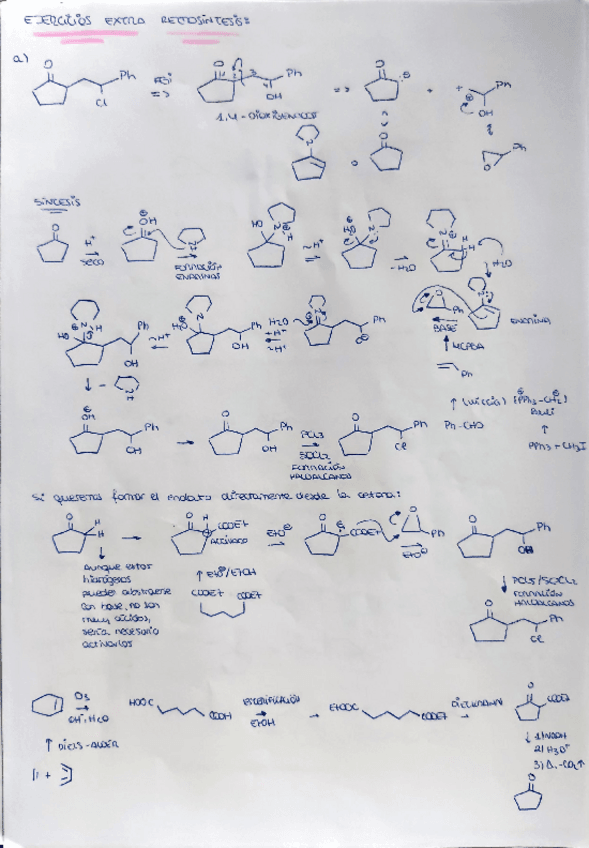 EJERCICIOS EXTRA RETROSÍNTESIS:
a) O Ph Cl FGI => O Ph OH => O + Ph OH
1,4-DIOXIGENADO
N O O Ph
SÍNTESIS
O H+ SECO OH N FORMACIÓN ENAMINAS HO N H ~H+ N -H2O N H H2O
HO N H Ph OH ~H+ N Ph OH H2O +H+ ~H+ N Ph O O Ph BASE N ENAMINA
MCPBA
Ph
- N H
(WITTIG) (PPh3-CH2)
BuLi
OH Ph OH O Ph OH PCl5 SOCl2 O Ph Cl Ph-CHO
FORMACIÓN HALOALCANOS
PPh3 + CH3I
Si queremos formar el enolato directamente desde la cetona:
O H H O H COOEt ACTIVADO EtO⊖ O COOEt O Ph EtO⊖ O Ph OH
Aunque estos
hidrógenos
pueden abstraerse
con base, no son
muy ácidos,
sería necesario
activarlos
EtO⊖/EtOH
COOEt COOEt
PCl5/SOCl2
FORMACIÓN
HALOALCANOS
O Ph Cl
O3 HOOC COOH ESTERIFICACIÓN EtOH EtOOC COOEt DIECKMANN O COOEt
DIELS-ALDER
1) NaOH
2) H3O+
3) Δ, -CO2↑
O